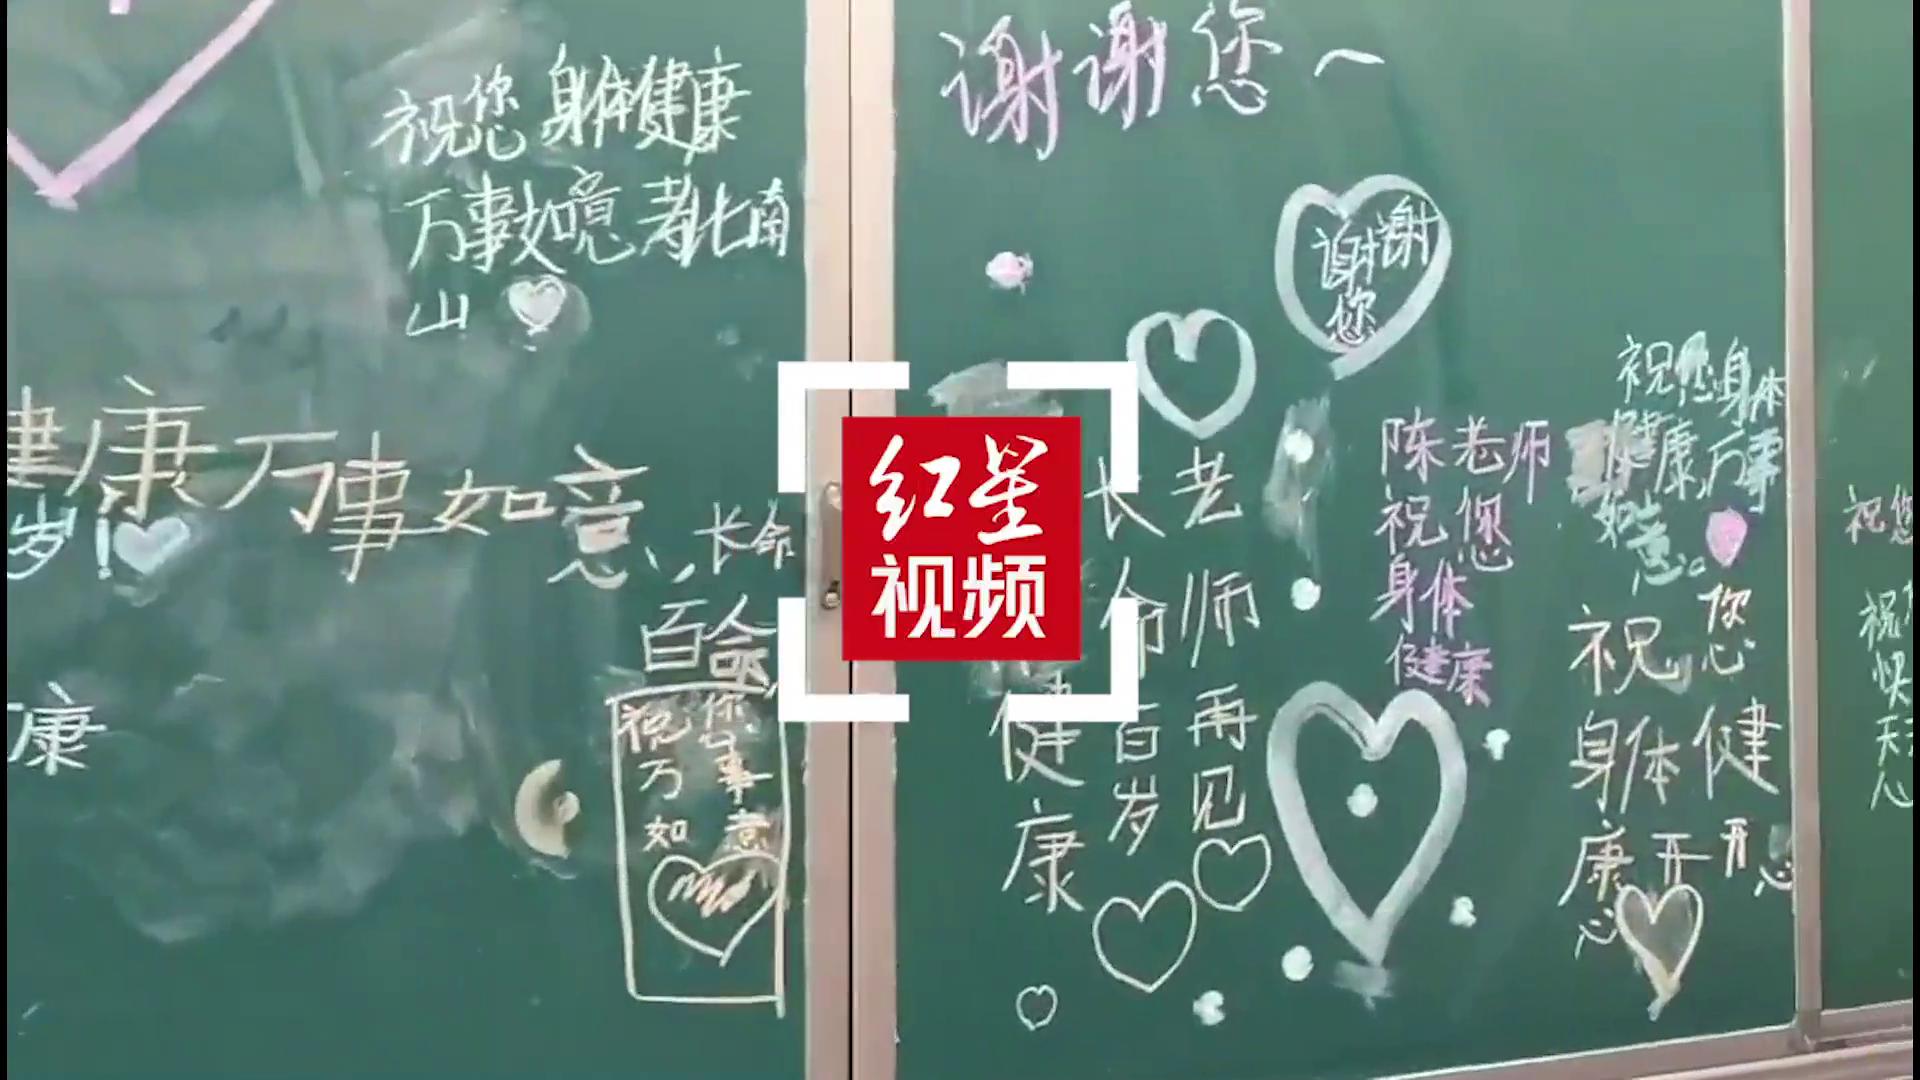 祝您身体健康
万事如意 寿比南
山
健康万事如意、长命
岁！
百命
康
祝你
万事
如意
谢谢您~
谢谢
您
红星
视频
老师再见
长命百岁
健康
陈老师
祝您
身体
健康
祝您身体
健康,万事
如意。
祝您
身体健
康开开
心
祝您
祝
快
天天
心